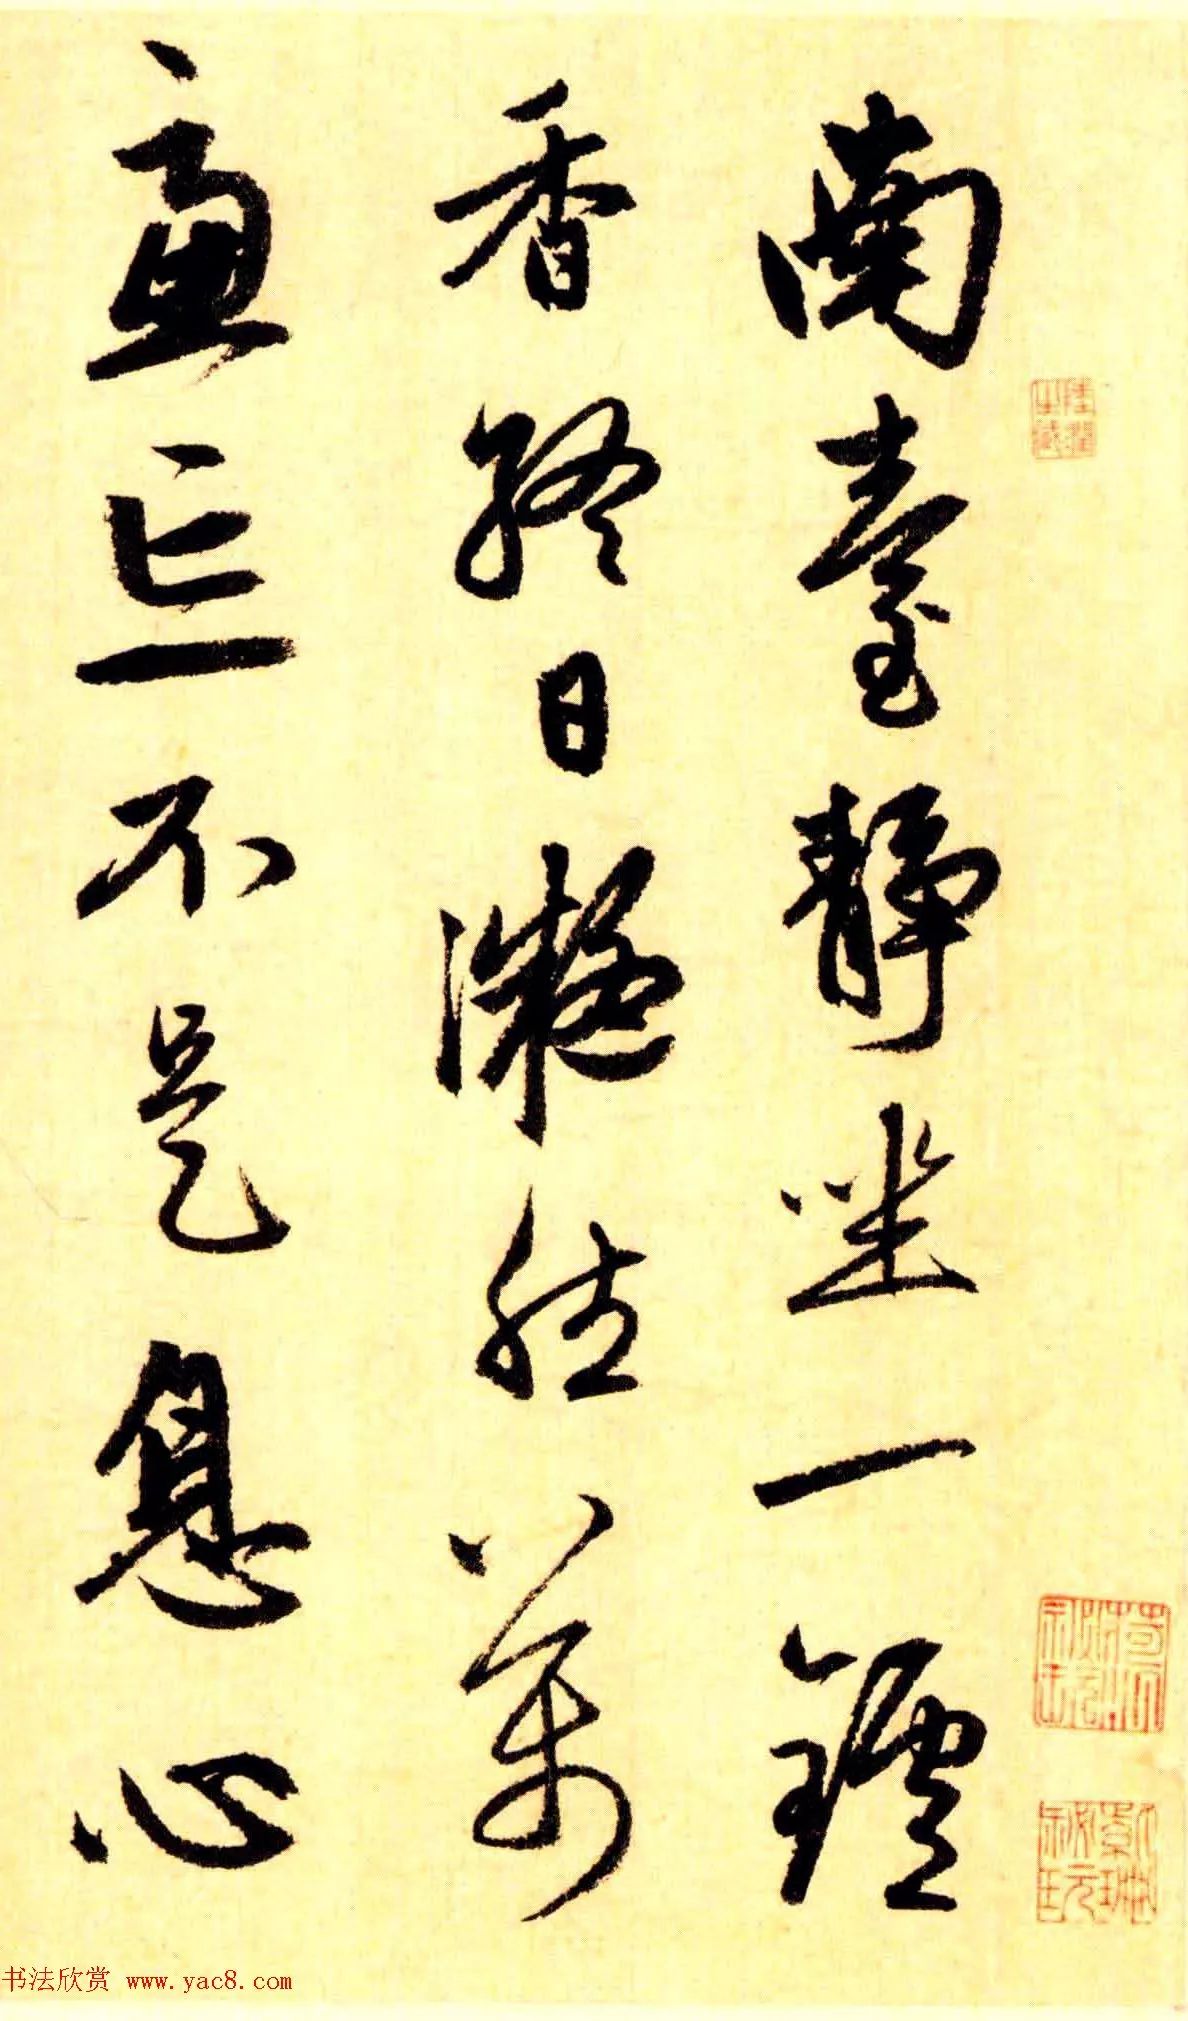 南臺靜坐一鑪
香終日凝然萬
慮亡不是息心
书法欣赏 www.yac8.com